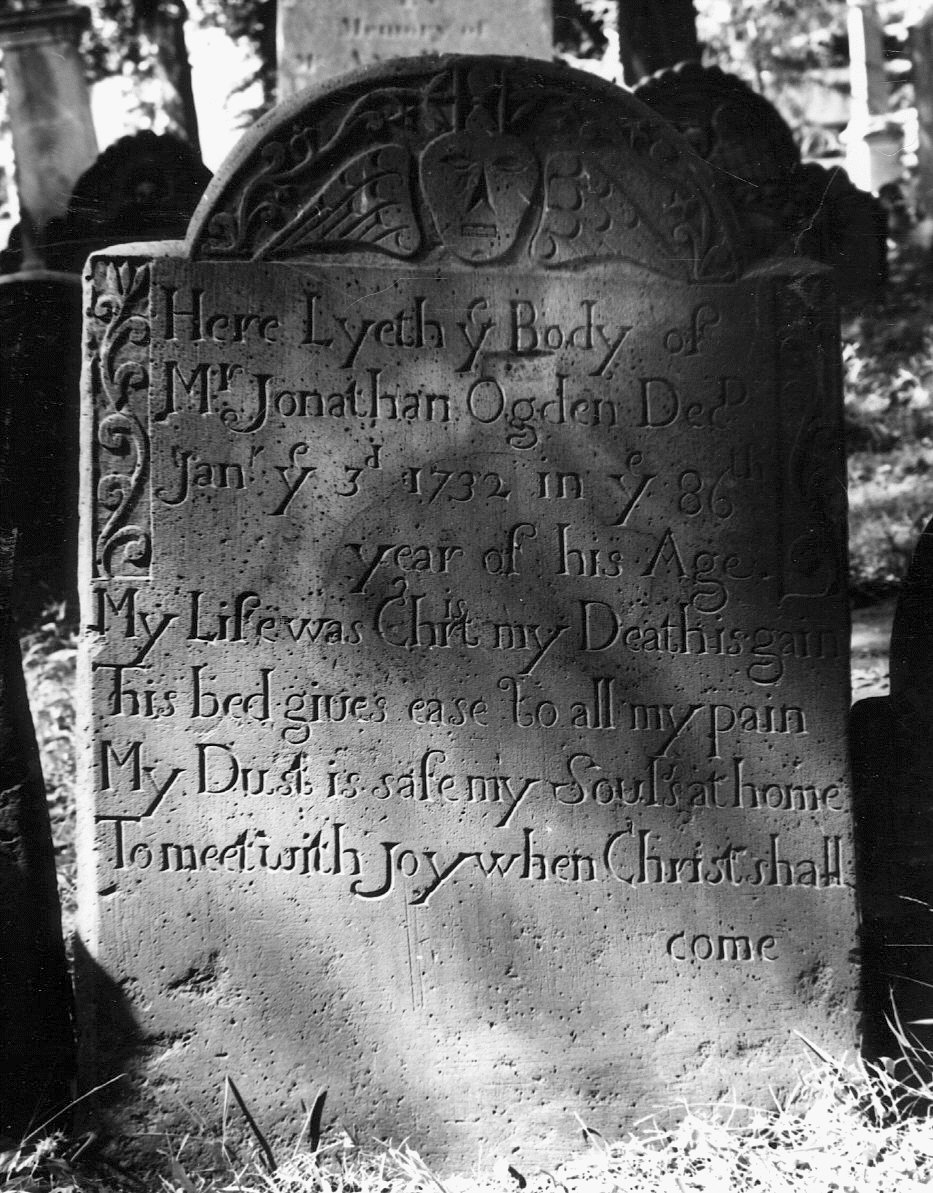 Memory of
Here Lyeth yᵉ Body of
Mʳ. Jonathan Ogden Decᴰ
Janʳ yᵉ 3ᵈ 1732 in yᵉ 86ᵗʰ
year of his Age.
My Life was Chrisᵗ my Death is gain
This bed gives ease to all my pain
My Dust is safe my Soul's at home
To meet with Joy when Christ shall
come